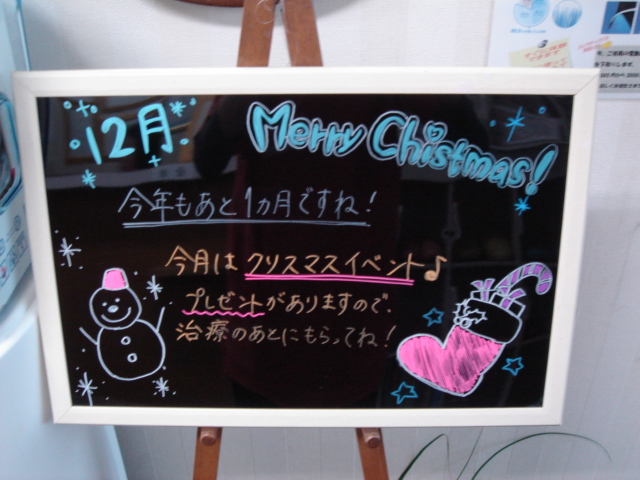 12月
Merry Chistmas!
今年もあと1ヵ月ですね!
今月はクリスマスイベント♪
プレゼントがありますので、
治療のあとにもらってね!